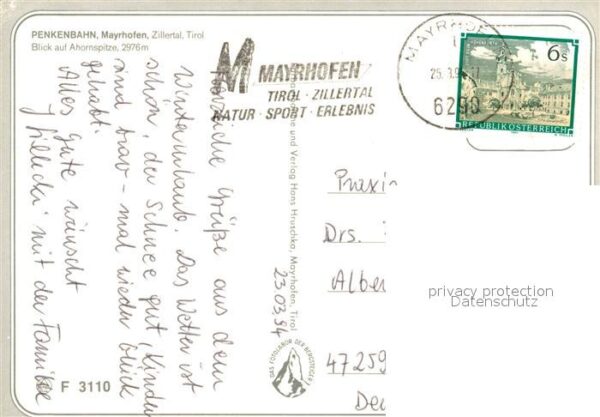 PENKENBAHN, Mayrhofen, Zillertal, Tirol
Blick auf Ahornspitze, 2976m
M MAYRHOFEN
TIROL · ZILLERTAL
NATUR · SPORT · ERLEBNIS
MAYRHOF
6290
6s
REPUBLIK ÖSTERREICH
Herzliche Grüße aus dem
Winterurlaub. Das Wetter ist
schön, der Schnee gut, Kinder
sind brav - mal wieder Glück
gehabt.
Alles Gute wünscht
mit der Familie
und Verlag Hans Hruschka, Mayrhofen, Tirol
23.03.94
DAS FOTOLABOR DER BERGSTEIGER
F 3110
Praxi
Drs.
Alber
47259
Deu
privacy protection
Datenschutz